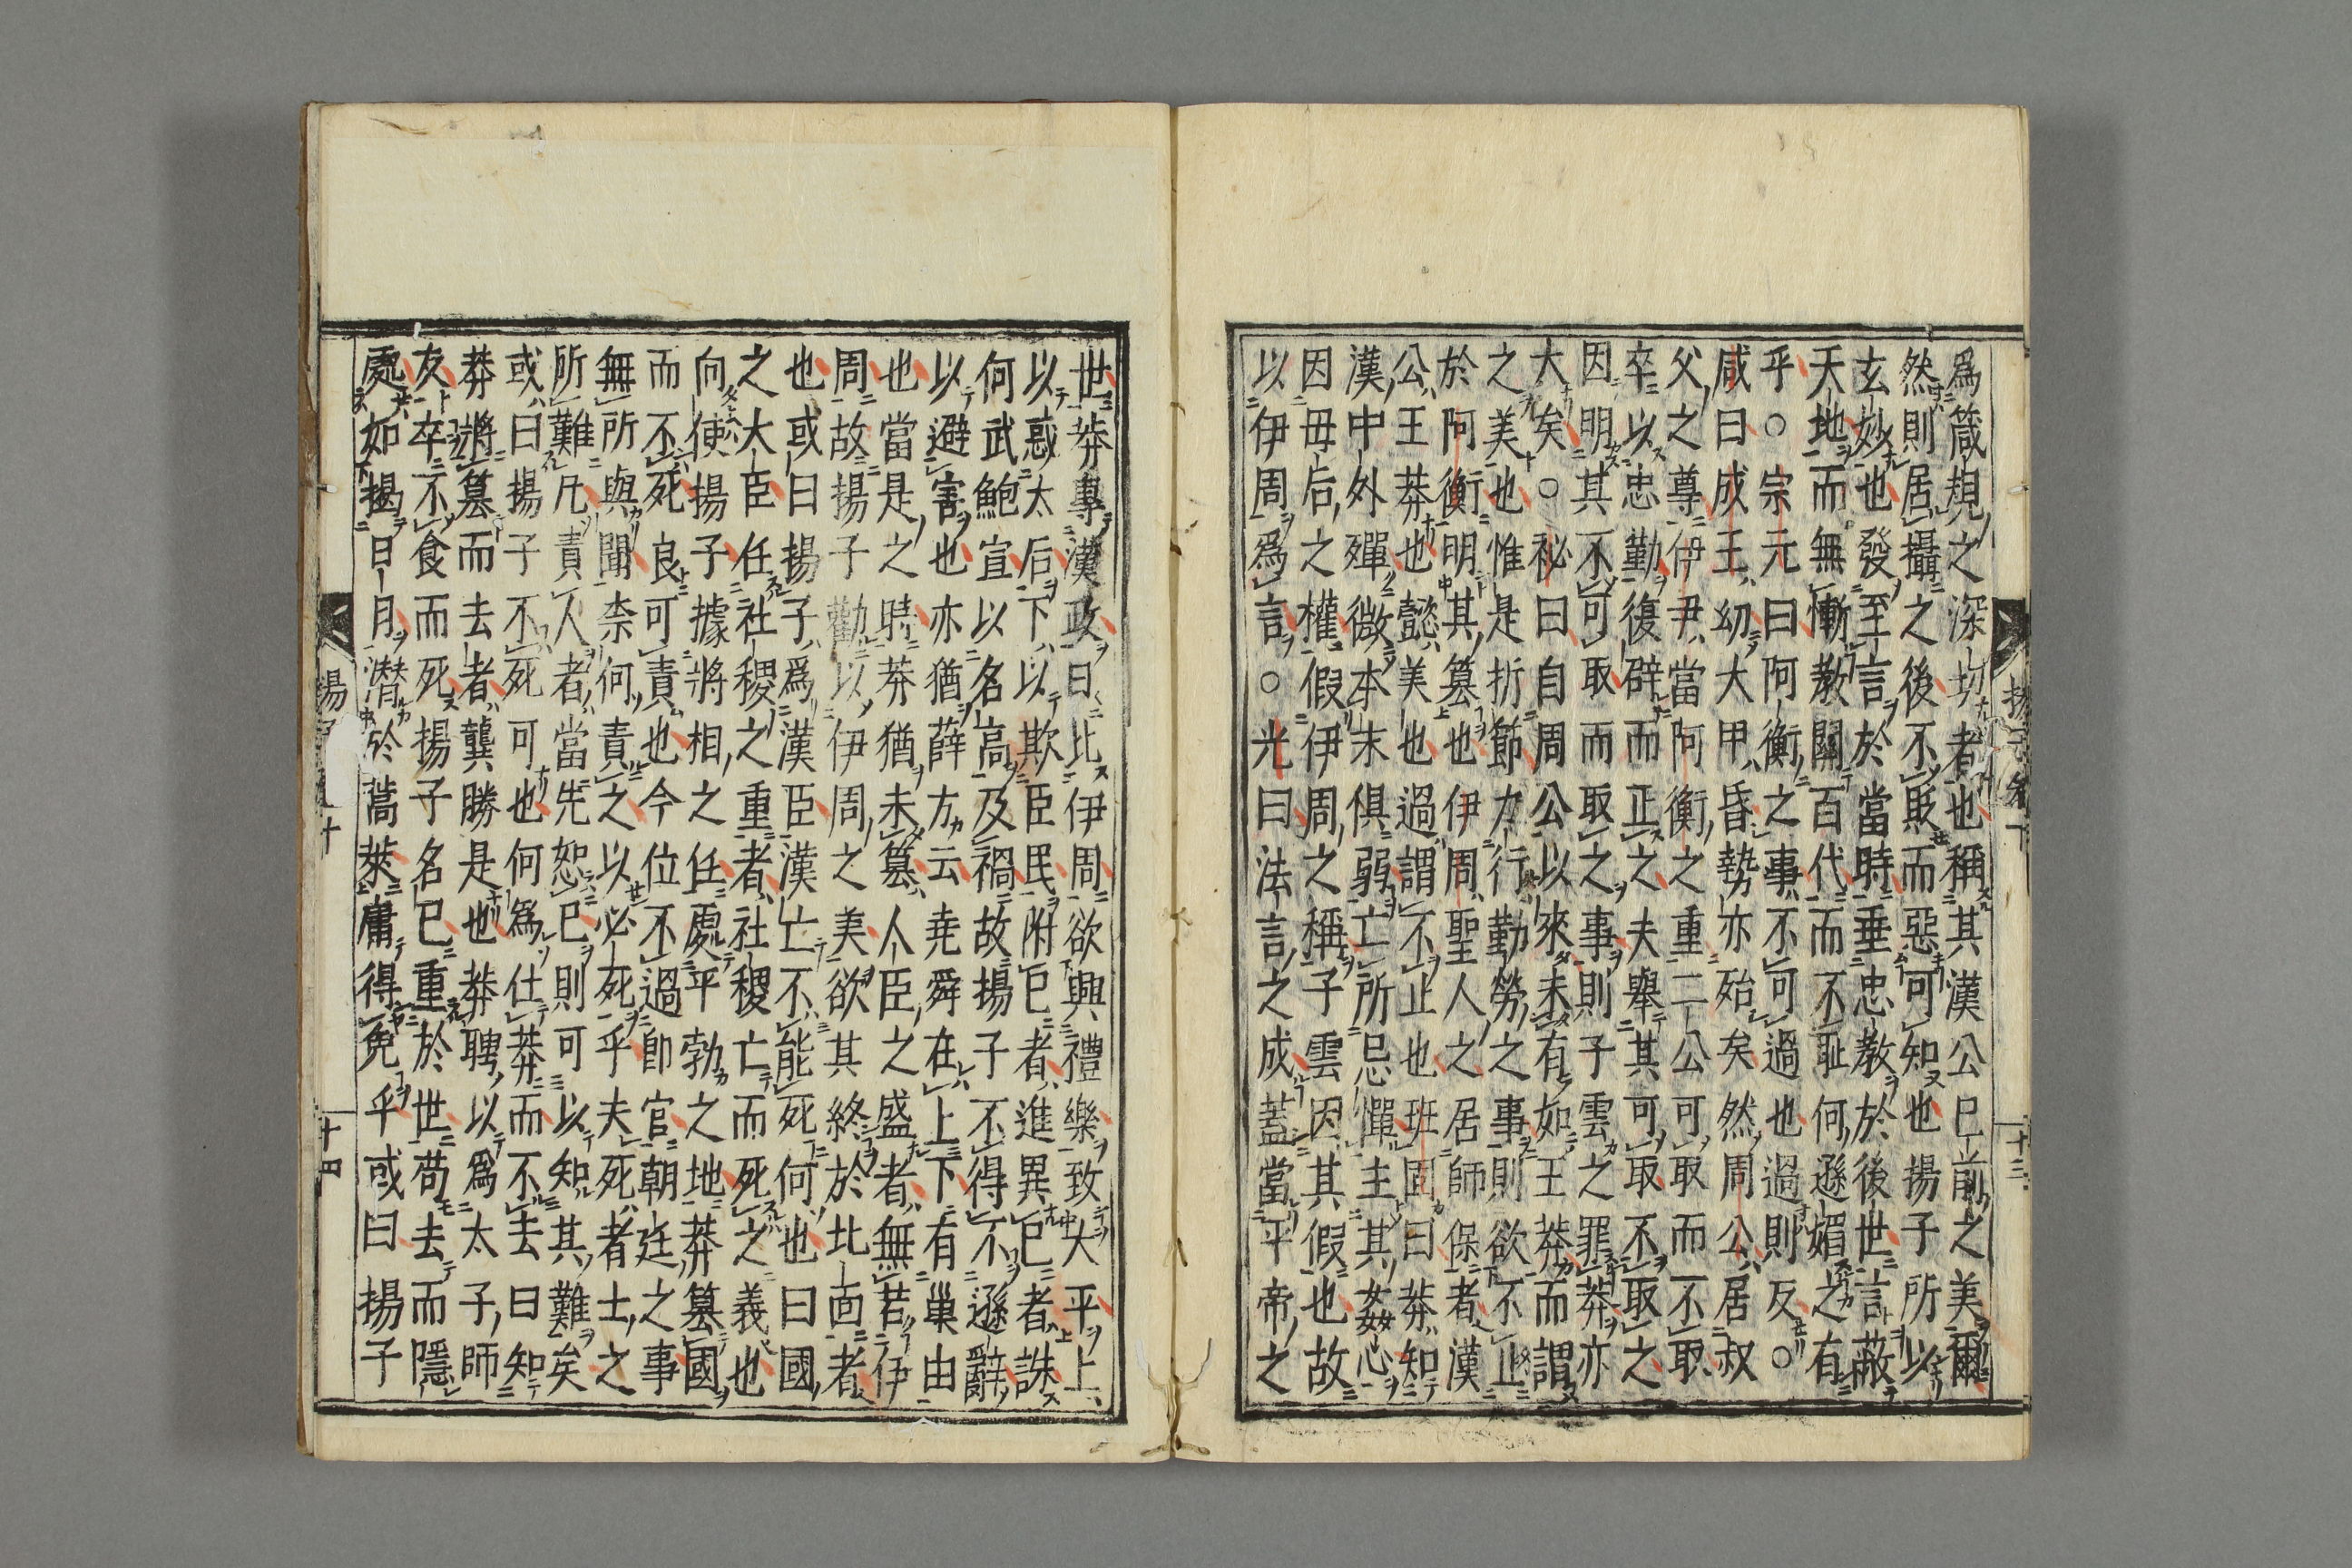 爲箴規之深切者也稱其漢公已前之美爾
然則居攝之後不貶而惡可知也揚子所以
玄妙也發至言於當時垂忠教於後世言蔽
天地而無慚教關百代而不恥何遜媚之有
乎○宗元曰阿衡之事不可過也過則反○
咸曰成王幼大甲昏勢亦殆矣然周公居叔
父之尊伊尹當阿衡之重二公可取而不取
卒以忠勤復辟而正之夫舉其可取不取之
因明其不可取而取之事則子雲之罪莽亦
大矣○祕曰自周公以來未有如王莽而謂
之美也惟是折節力行勤勞之事則欲不止
於阿衡明其簒也伊周聖人之居師保者漢
公王莽也懿美也過謂不止也班固曰莽知
漢中外殫微本末俱弱亡所忌憚主其姦心
因母后之權假伊周之稱子雲因其假也故
以伊周爲言○光曰法言之成蓋當平帝之
揚子卷下
十三
世莽專漢政日比伊周欲興禮樂致大平上
以惑太后下以欺臣民附已者進異已者誅
何武鮑宣以名高及禍故揚子不得不遜辭
以避害也亦猶薛方云堯舜在上下有巢由
也當是之時莽猶未簒人臣之盛者無若伊
周故揚子勸以伊周之美欲其終於北面者
也或曰揚子爲漢臣漢亡不能死何也曰國
之大臣任社稷之重者社稷亡而死之義也
向使揚子據將相之任處平勃之地莽簒國
而不死良可責也今位不過郎官朝廷之事
無所與聞柰何責之以必死乎夫死者士之
所難凡責人者當先恕已則可以知其難矣
或曰揚子不死可也何爲仕莽而不去曰知
莽將簒而去者龔勝是也莽聘以爲太子師
友卒不食而死揚子名已重於世苟去而隱
處如揭日月潛於蒿萊庸得免乎或曰揚子
揚
十
十四